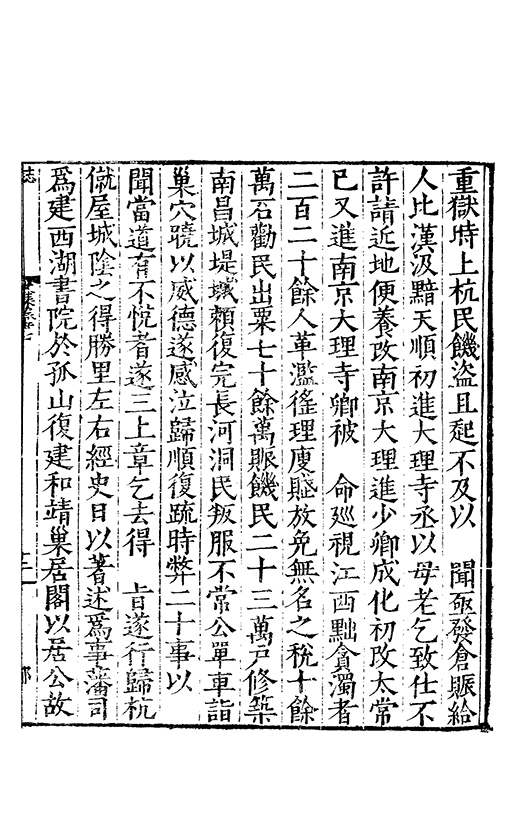 重獄時上杭民饑盜且起不及以　聞亟發倉賑給
人比漢汲黯天順初進大理寺丞以母老乞致仕不
許請近地便養改南京大理進少卿成化初改太常
已又進南京大理寺卿被　命廵視江西黜貪濁者
二百二十餘人革濫徭理廋賍放免無名之稅十餘
萬石勸民出粟七十餘萬賑饑民二十三萬戸修築
南昌城堤堘賴復完長河洞民叛服不常公單車詣
巢穴蹺以威德遂感泣歸順復疏時弊二十事以
聞當道有不悅者遂三上章乞去得　旨遂行歸杭
僦屋城陰之得勝里左右經史日以著述爲事藩司
爲建西湖書院於孤山復建和靖巢居閣以居公故
誌